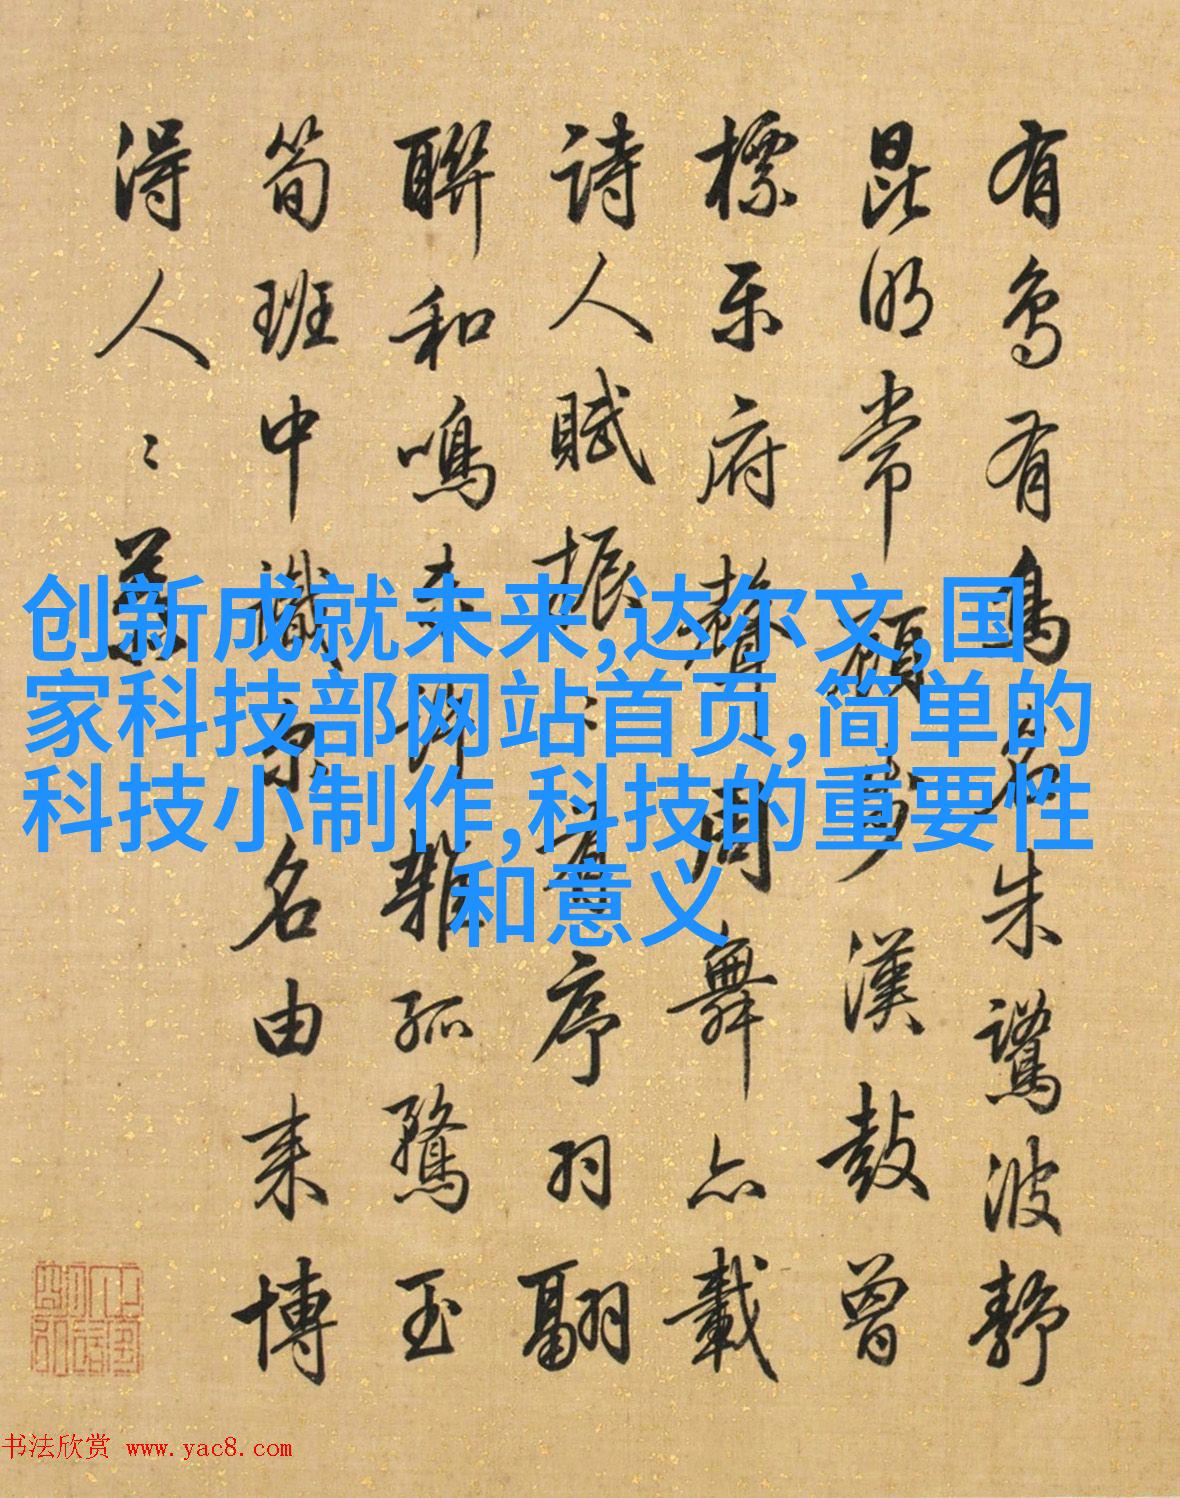 有鳥有鳥名朱鷺波静
昆明常顧步漢鼓曾
標樂府聲周舞亦載
詩人賦振〻者序羽翮
聯和鳴未許雜孤鶩玉
筍班中識名由来博
得人〻慕
创新成就未来,达尔文,国
家科技部网站首页,简单的
科技小制作,科技的重要性
和意义
书法欣赏 www.yac8.com